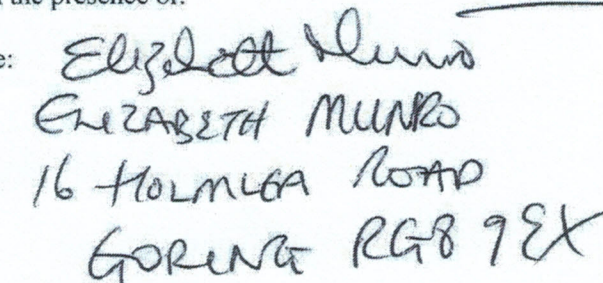 the presence of:
e: Elizabeth Munro
ELIZABETH MUNRO
16 HOLMLEA ROAD
GORING RG8 9EX